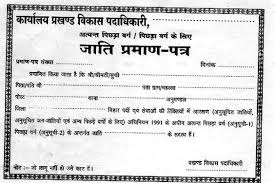 कार्यालय प्रखण्ड विकास पदाधिकारी,
अत्यन्त पिछड़ा वर्ग / पिछड़ा वर्ग के लिए
जाति प्रमाण-पत्र
प्रमाण-पत्र संख्या दिनांक
प्रमाणित किया जाता है कि श्री/श्रीमती/सुश्री
पिता/पति श्री ग्राम/मोहल्ला
पो० थाना अनुमण्डल
जिला बिहार पदों एवं सेवाओं की रिक्तियों में आरक्षण (अनुसूचित जातियों,
अनुसूचित जन-जातियों एवं अन्य पिछड़े वर्गों के लिए) अधिनियम 1991 के अधीन अत्यन्त पिछड़ा वर्ग (अनुसूची-1)
पिछड़ा वर्ग (अनुसूची-2) जाति के सदस्य हैं।
नोट :- जो लागू नहीं हो उसे काट दें।
प्रखण्ड विकास पदाधिकारी